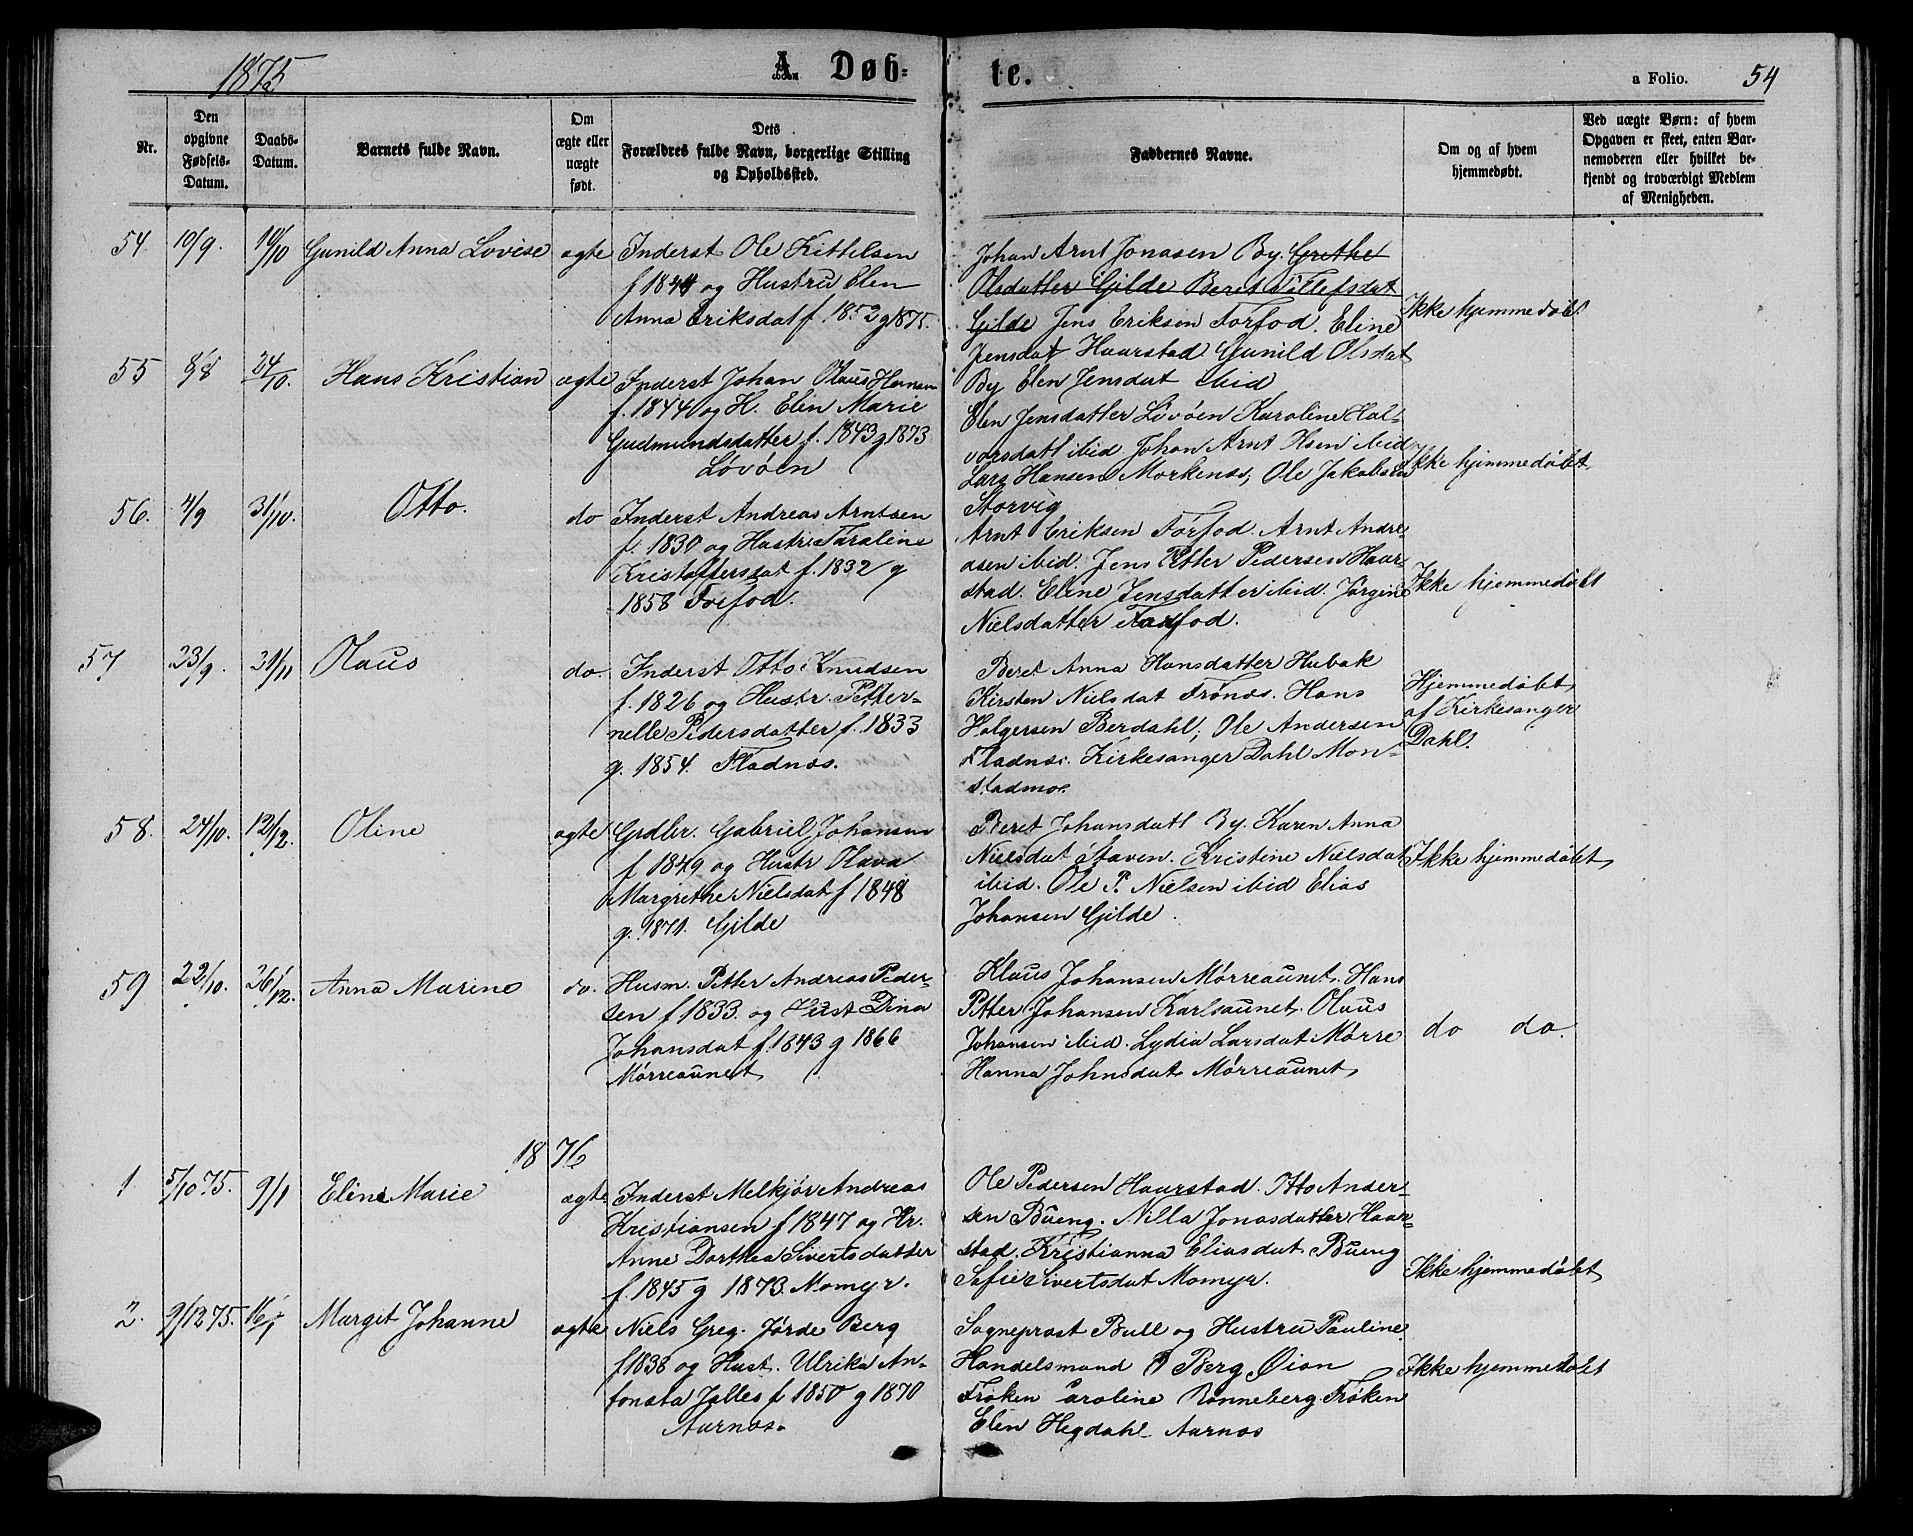 1875
A Døb-
te.
a Folio. 54
Nr.
Den opgivne Fødsels-Datum.
Daabs-Datum.
Barnets fulde Navn.
Om ægte eller uægte født.
Dets Forældres fulde Navn, borgerlige Stilling og Opholdssted.
Faddernes Navne.
Om og af hvem hjemmedøbt.
Ved uægte Børn: af hvem Opgaven er skeet, enten Barnemoderen eller hvilket bekjendt og troværdigt Medlem af Menigheden.
54. 19/9. 10/10 Gunild Anna Lovise ægte
Inderst Ole Kittilsen
f 1844 og Hustru Elen
Anna Eriksdat f. 1852 g 1875.
Johan Arnt Jonasen By. Grethe
Olsdatter Gilde Beret Tollefsdat
Gilde Jens Eriksen Forfod. Eline
Jensdat Haarstad Gunild Olsdat
By Elen Jensdat ibid
Ikke hjemmedøbt
55 8/8 24/10. Hans Kristian ægte
Inderst Johan Olaus Hansen
f. 1844 og H. Elen Marie
Gudmundsdatter f. 1843 g 1873
Lóvóen
Elen Jensdatter Lóvóen Karoline Hal-
vorsdatt ibid Johan Arnt Olsen ibid
Lars Hansen Morkenæs, Ole Jakobsen
Storvig
Ikke hjemmedøbt
56. 4/9 31/10. Otto. do
Inderst Andreas Arntsen
f. 1830 og Hustr. Taraline
Kristoffersdat f. 1832 g
1858 Forfod.
Arnt Eriksen Forfod. Arnt Andre-
asen ibid. Jens Petter Pedersen Haar-
stad. Eline Jensdatter ibid. Jørgine
Nielsdatter Forfod.
Ikke hjemmedøbt
57 23/9. 21/11 Olaus do.
Inderst Otto Knudsen
f. 1826 og Hustr. Petter-
nelle Pedersdatter f. 1833
g. 1854. Fladnæs.
Beret Anna Hansdatter Hubak
Kirsten Nielsdat Frónæs. Hans
Holgersen Berdahl, Ole Andersen
Fladnæs. Kirkesanger Dahl Mon-
stadmo.
Hjemmedøbt
af Kirkesanger
Dahl.
58. 24/10. 12/12. Oline ægte
Grdbr. Gabriel Johansen
f 1849 og Hustr Olava
Margrethe Nielsdat f 1848
g. 1871. Gilde
Beret Johansdatt By. Karen Anna
Nielsdat Staven. Kristine Nielsdat
ibid. Ole P. Nielsen ibid Elias
Johansen Gilde.
Ikke hjemmedøbt
59 22/10. 26/12. Anna Marine do.
Husm. Petter Andreas Peder-
sen f 1833. og Hust Dina
Johansdat f. 1843 g 1866
Mórreaunet
Klaus Johansen Mórreaunet. Hans
Petter Johansen Karlsaunet. Olaus
Johansen ibid. Lydia Larsdat Mórre
Hanna Johnsdat Mórreaunet
do do.
1876
1 5/10 75. 9/1 Eline Marie ægte
Inderst Melkjór Andreas
Kristiansen f 1847 og Hr.
Anne Dorthea Sivertsdatter
f. 1845 g 1873. Momyr.
Ole Pedersen Haarstad. Otto Ander-
sen Bueng. Nilla Jonasdatter Haar-
stad. Kristianna Eliasdat Bueng
Sofie Sivertsdat Momyr.
Ikke hjemmedøbt
2. 9/12 75. 16/1 Margit Johanne ægte
Niels Greg. Jørde Berg
f 1838 og Hust. Ulrika An-
tonsta Jelles f 1850 g 1870
Aarnæs.
Sogneprest Bull og Hustru Pauline
Handelsmand P Berg Øien
Frøken Caroline Rønneberg Frøken
Elen Hegdahl Aarnæs
Ikke hjemmedøbt